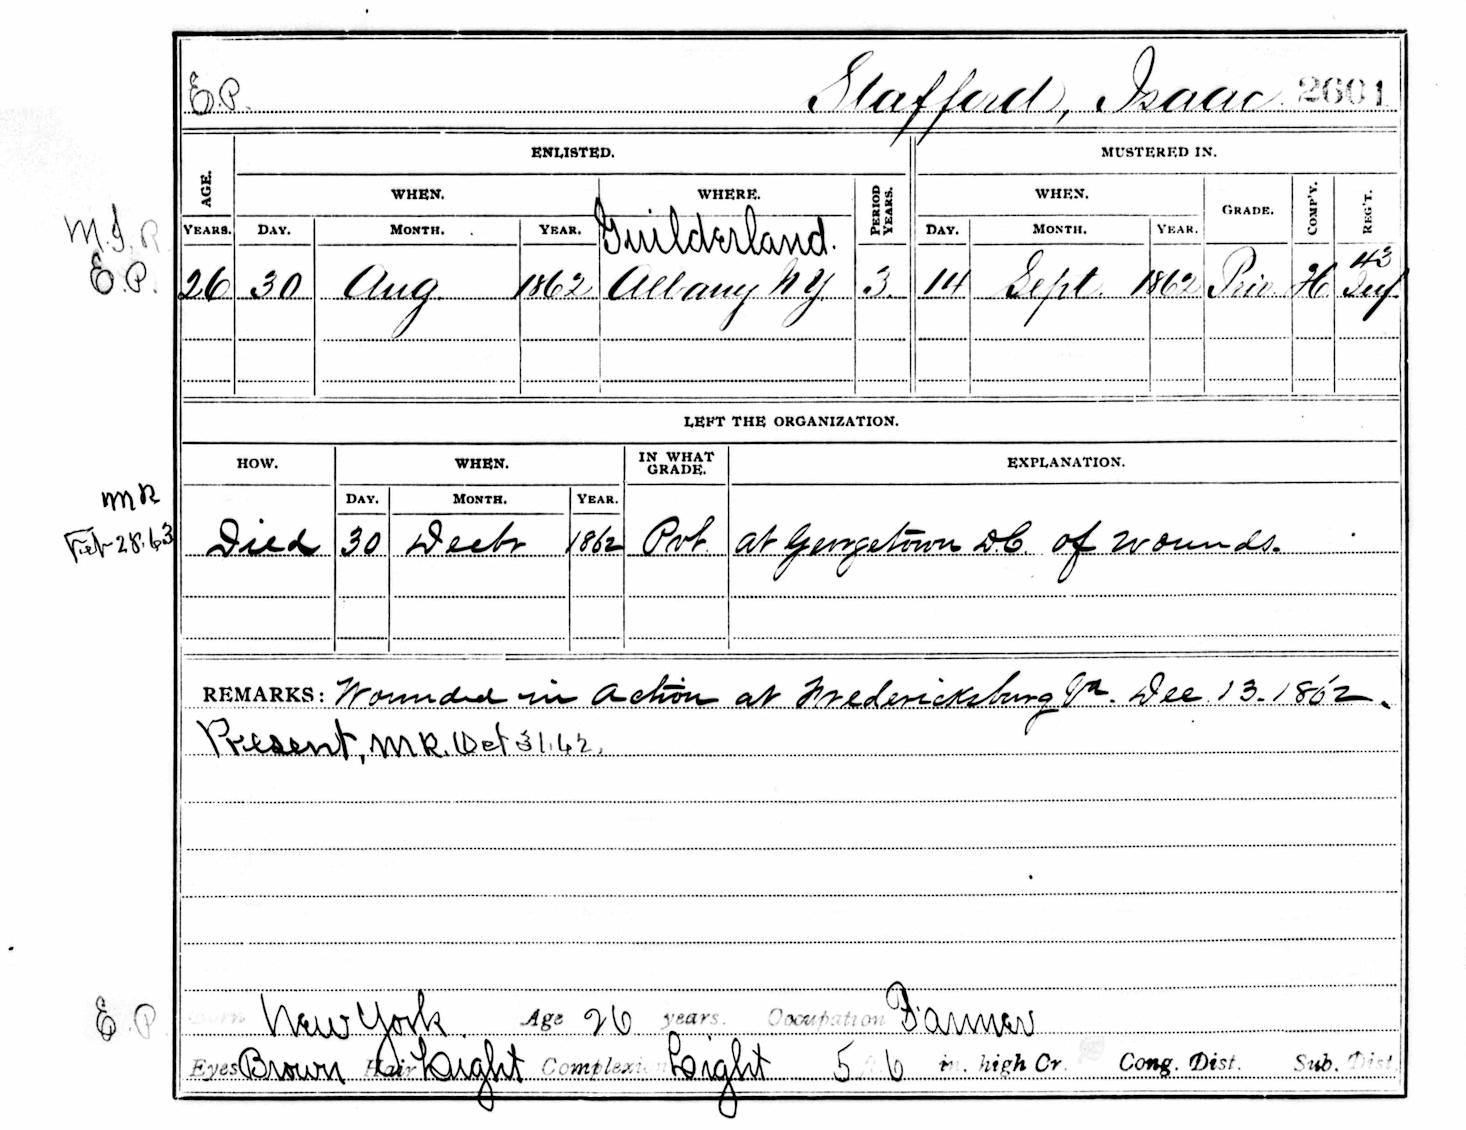 E.P. Stafford, Isaac 2601
ENLISTED. MUSTERED IN.
AGE. WHEN. WHERE. PERIOD YEARS. WHEN. GRADE. COMP'Y. REG'T.
M.I.R.
YEARS. DAY. MONTH. YEAR. Guilderland. DAY. MONTH. YEAR.
E.P. 26 30 Aug. 1862 Albany N.Y. 3. 14 Sept. 1862 Priv. H 43 Inf.
LEFT THE ORGANIZATION.
HOW. WHEN. IN WHAT GRADE. EXPLANATION.
DAY. MONTH. YEAR.
MR
Feb 28.63 Died 30 Decbr 1862 Pvt. at Georgetown D.C. of wounds.
REMARKS: Wounded in action at Fredericksburg Va. Dec 13. 1862.
Present, MR. Oct 31.62.
E.P. Born New York. Age 26 years. Occupation Farmer
Eyes Brown Hair Light Complexion Light 5 ft. 6 in. high Cr. Cong. Dist. Sub. Dist.